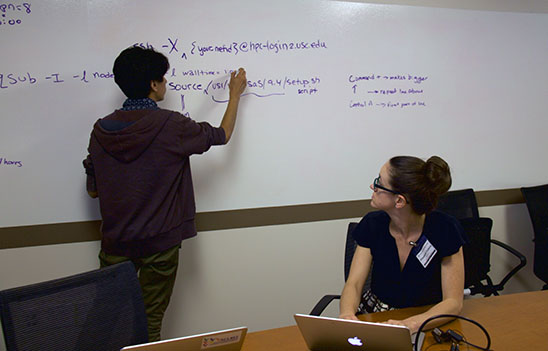 n=8
:00
ssh -X {your netid}@hpc-login2.usc.edu
qsub -I -l node
l walltime=
source /usr/ sas/9.4/setup.sh
script
Command + → makes bigger
↑ → repeat last above
Control A → front part of line